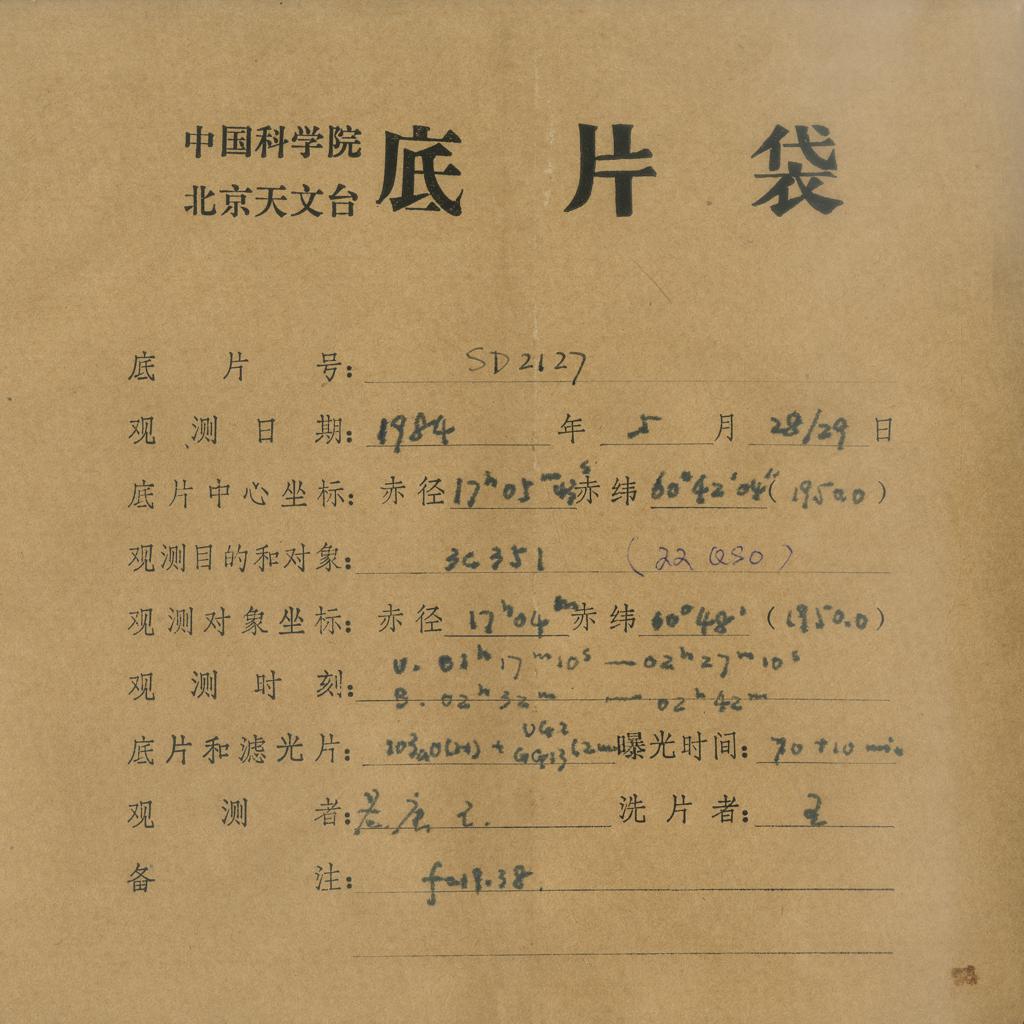 中国科学院
北京天文台
底片袋
底片号: SD2127
观测日期: 1984年 5月 28/29日
底片中心坐标: 赤径 17ʰ05ᵐ43ˢ 赤纬 60°42′04″ (1950.0)
观测目的和对象: 3C351 (22 QSO)
观测对象坐标: 赤径 17ʰ04ᵐ 赤纬 60°48′ (1950.0)
观测时刻: U. 17ᵐ10ˢ — 02ʰ27ᵐ10ˢ
B. 02ʰ32ᵐ — 02ʰ42ᵐ
底片和滤光片: 103aO(H) + UG2 GG13 (2mm 曝光时间: 70+10 min
观测者: 唐 王. 洗片者: 王
备注: f=19.38.